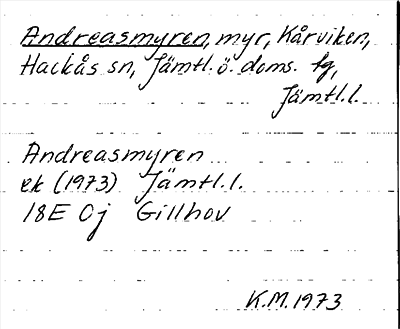 Andreasmyren, myr, Kårviken,
Hackås sn, Jämtl. ö. doms. tg,
Jämtl.l.
Andreasmyren
ek (1973) Jämtl.l.
18E 0j Gillhov
K.M. 1973